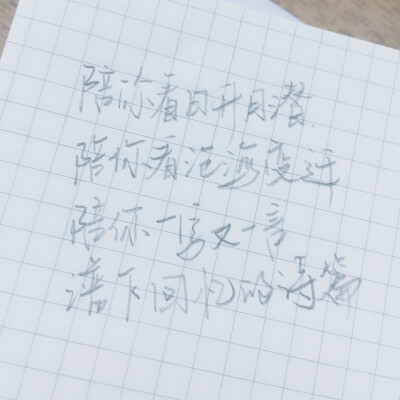 陪你看日升月潜
陪你看沧海变迁
陪你一字又一言
谱下回忆的诗篇